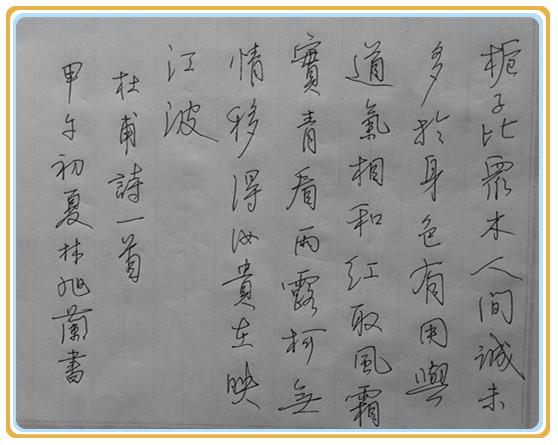 栀子比眾木人間誠未
多於身色有用與
道氣相和紅取風霜
實青看雨露柯無
情移得汝貴在映
江波
杜甫詩一首
甲午初夏林旭蘭書